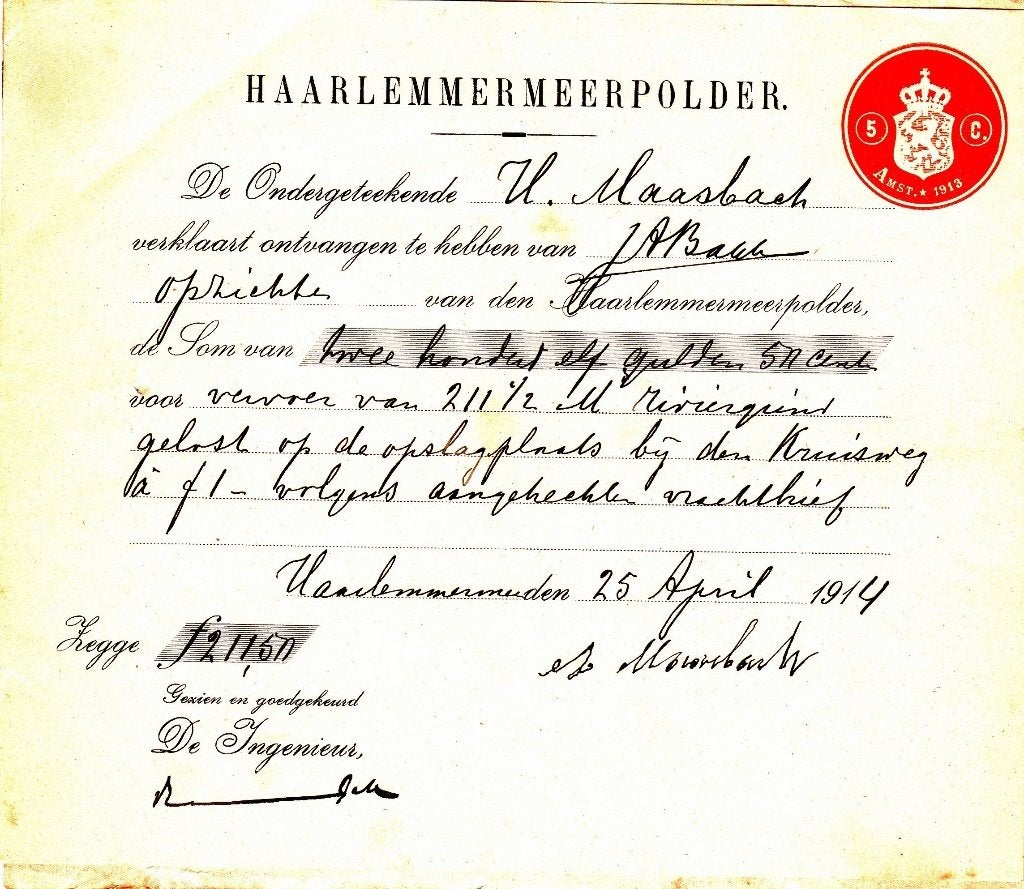 HAARLEMMERMEERPOLDER.
5 C.
AMST. ★ 1913
De Ondergeteekende H. Maasbach
verklaart ontvangen te hebben van J A Bakk
opzichter van den Haarlemmermeerpolder,
de Som van twee honderd elf gulden 50 cent
voor vervoer van 211 1/2 M riviergrind
gelost op de opslagplaats bij den Kruisweg
à f 1 – volgens aangehechten vrachtbrief
Haarlemmermeer den 25 April 1914
Zegge f 211,50
Maasbach
Gezien en goedgekeurd
De Ingenieur,